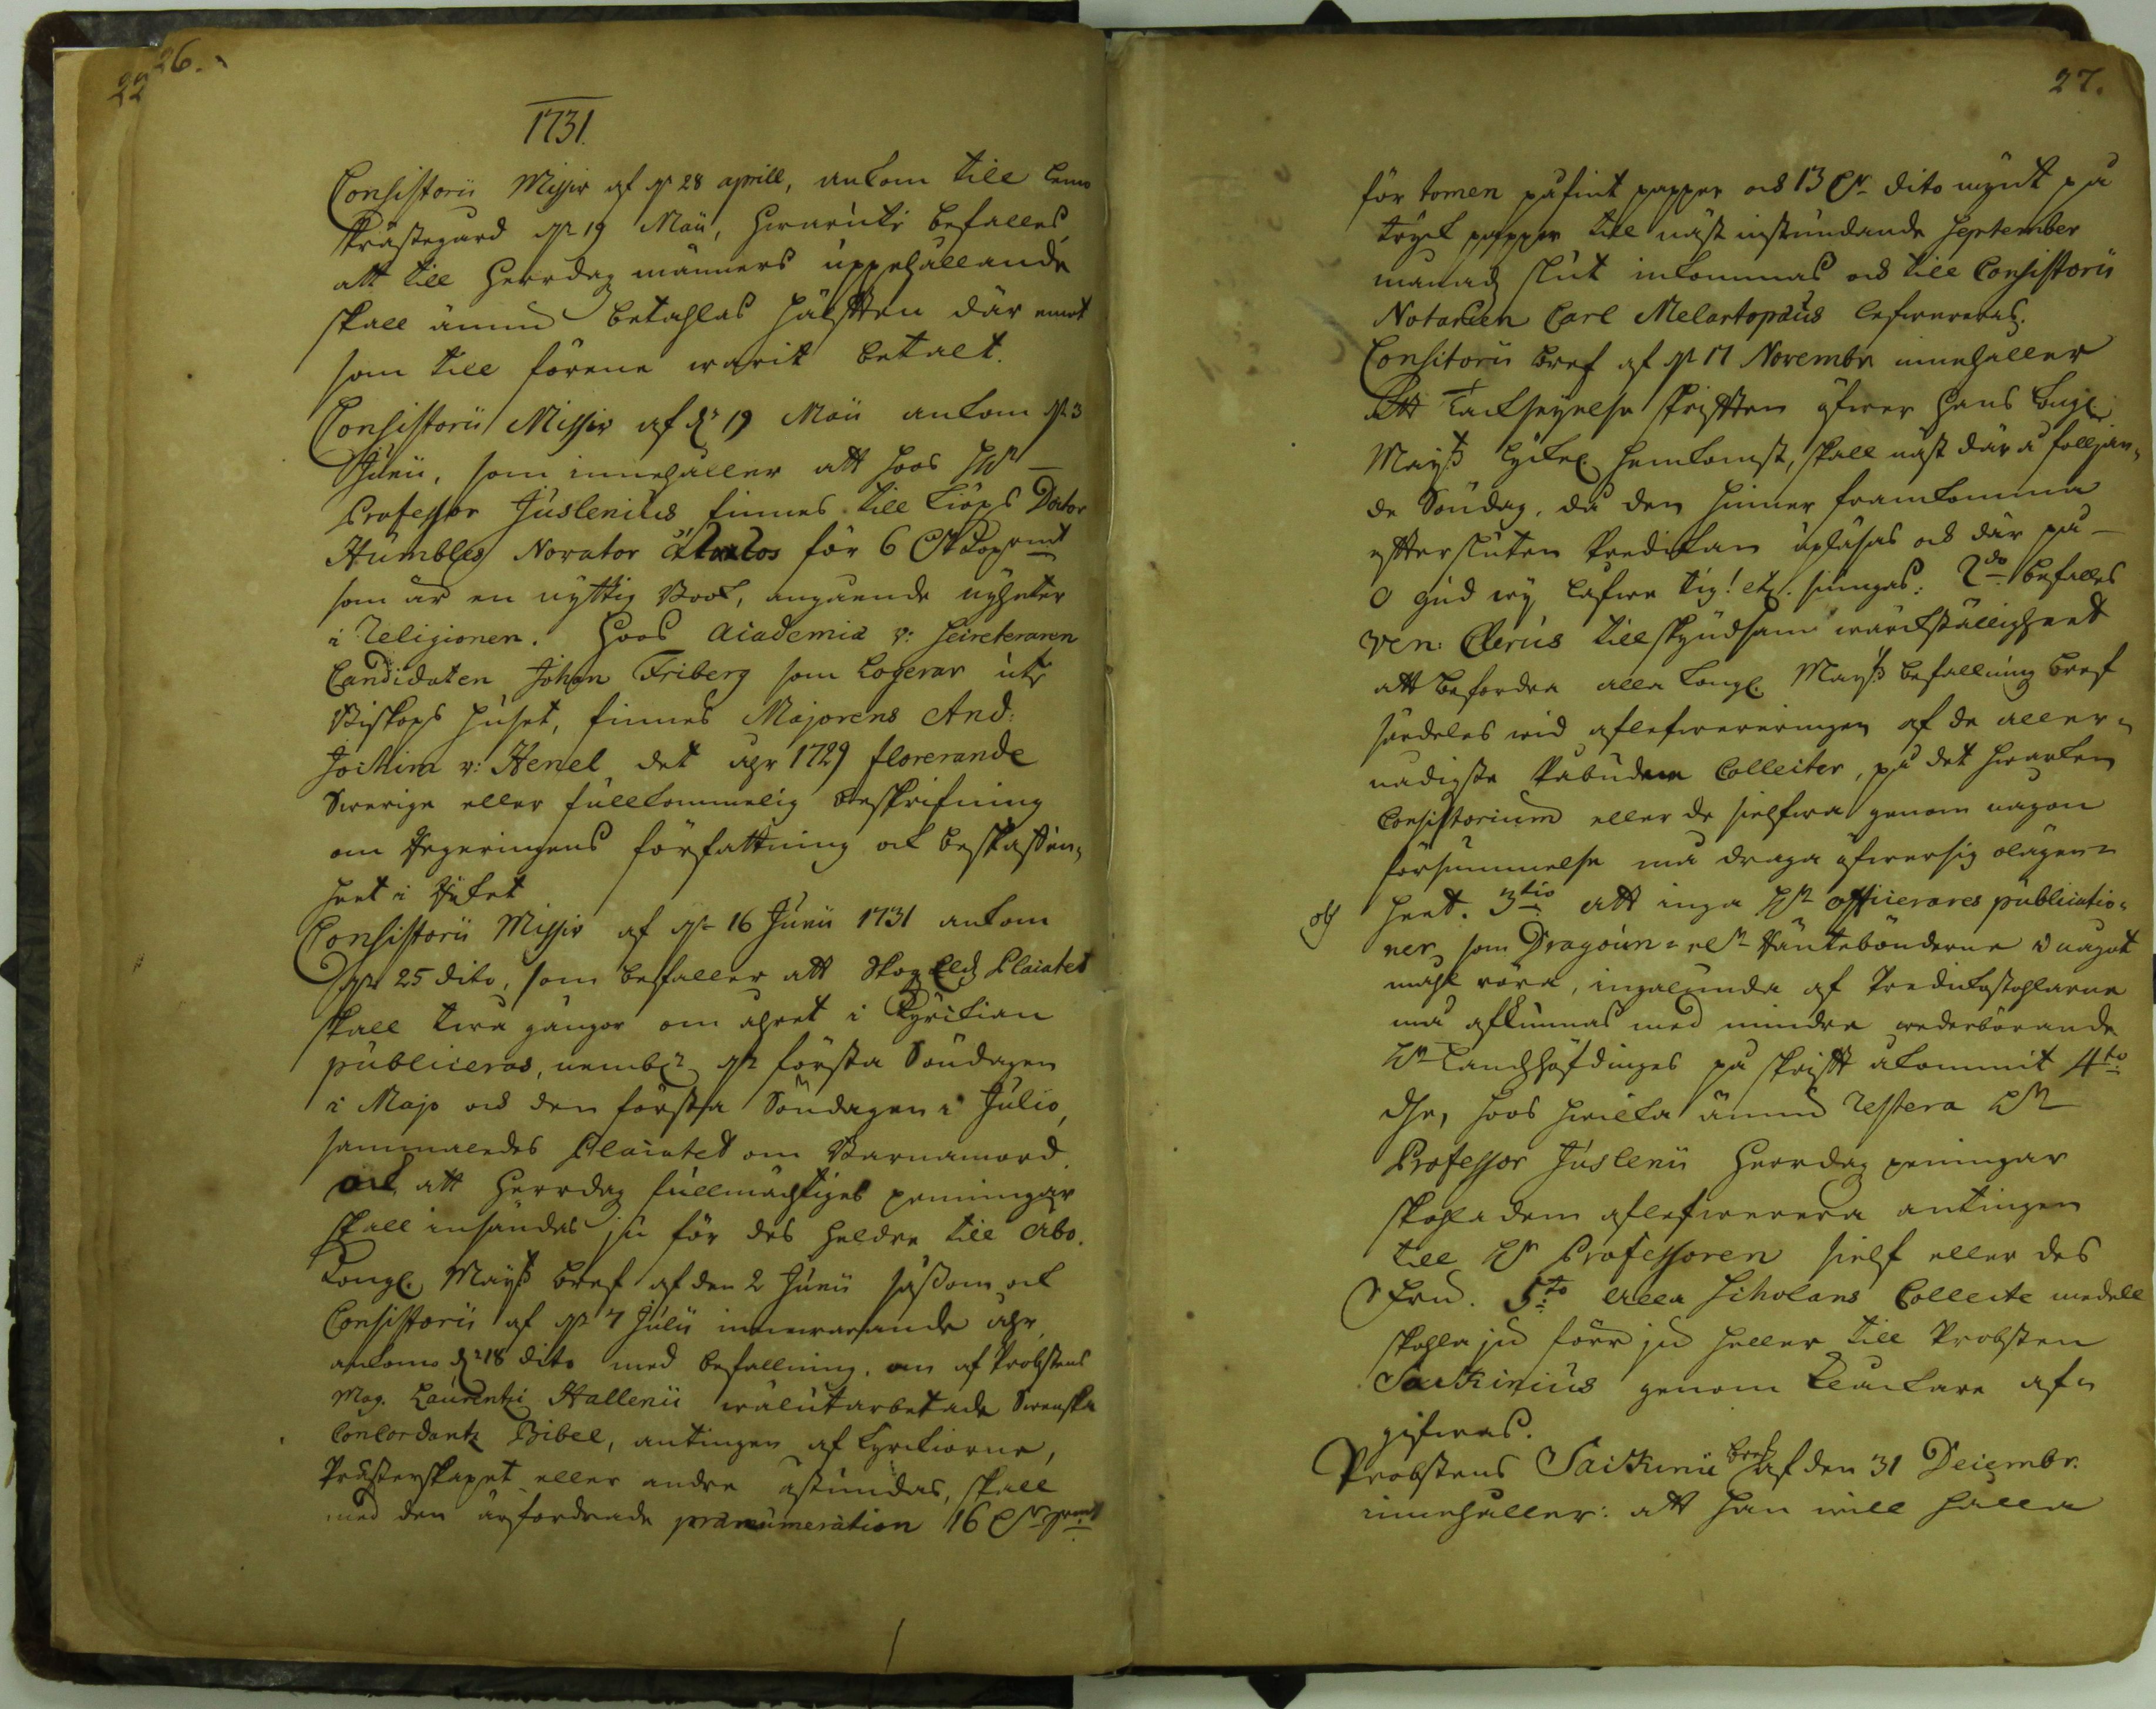 26.
22
1731.
Consistorii Missiv af d. 28 aprill, ankom till Lemo
Prästegård d. 19 Maii, hwarutj befalles,
att till Herredag männers uppehållande
skall ännu betahlas hälften där emot
som till förene warit betalt.
Consistorii Missiv af d. 19 Maii ankom d. 3
Junii, som innehåller att hoos Hr
Professor Juslenius finnes till kiöps Doctor
Humbles Novator för 6 kopmt
som är en nyttig Book, angående nyheter
i Religionen. Hoos Academiæ v: Secreteraren
Candidaten Johan Friberg som Logerar uti
Biskops huset, finnes Majorens And:
Jochim v: Henel, det åhr 1729 florerande
Swerige eller fullkommelig beskrifning
om Regeringens författning ock beskaffen,
heet i Riket
Consistorii Missiv af d. 16 Junii 1731 ankom
d. 25 dito, som befaller att Skog Eldz Placatet
skall twå gångor om åhret i Kyrckian
publiceras, nembl. d. första Söndagen
i Majo och den första Söndagen i Julio,
sammaledes Placatet om Barnamord.
ock att Herredag fullmächtiges penningar
skall insändas ju för des heldre till Åbo.
Kongl. Mayts bref af den 2 Junii såsom ock
Consistorii af d. 7 Julii innewarande åhr,
ankomo d. 18 dito med befallning, om af Probstens
Mag. Laurentii Hallenii wälutarbetade Swenska
Concordantz Bibel, antingen af Kyrckiorne,
Prästerskapet eller andre åstundas, skall
med den ärfordrade prænumeration 16
27.
för tomen på fint papper och 13 dito mynt på
tryck papper till näst instundande September
månadz slut inkommas och till Consistorii
Notarien Carl Melartopæus lefwereras.
Consitorii bref af d. 17 Novembr innehåller
Att Tacksejelse skriften öfwer Hans Kongl.
Mayts lyckel. hemkomst, skall näst där å följan,
de Söndag, då den hinner framkomma
efter sluten Predikan upläsas och där på
O gud wij lofwe tig! etc. siungas. 2do befalles
Ven: Clerus till skyndsam wärckställigheet
att befordra alla Kongl. Mayts befallning bref
särdeles wid aflefwereringen af de aller,
nådigste påbudna Collecter, på det hwarken
Consistorium eller de sielfwa genom någon
försummelse må draga öfwer sig olägen,
heet. 3tio att inga Hr officerares publicatio,
ner, som Dragoun- el. Ränteböndernе i något
måhl röra, ingalunda af Predikostohlarna
må afkunnas med mindre wederbörande
Hr Landshöfdinges påskrift åkommit 4to
De, hoos hwilka ännu restera Hr
Professor Juslenii Herredag peningar
skohla dem aflefwerera antingen
till Hr Professoren sielf eller des
Fru. 5to Alla Scholans Collecte medell
skohla ju förr ju heller till Probsten
Sackinius genom klackare af,
gifwas.
Probstens Sackinii bref af den 31 Decembr.
innehåller: att han will hålla